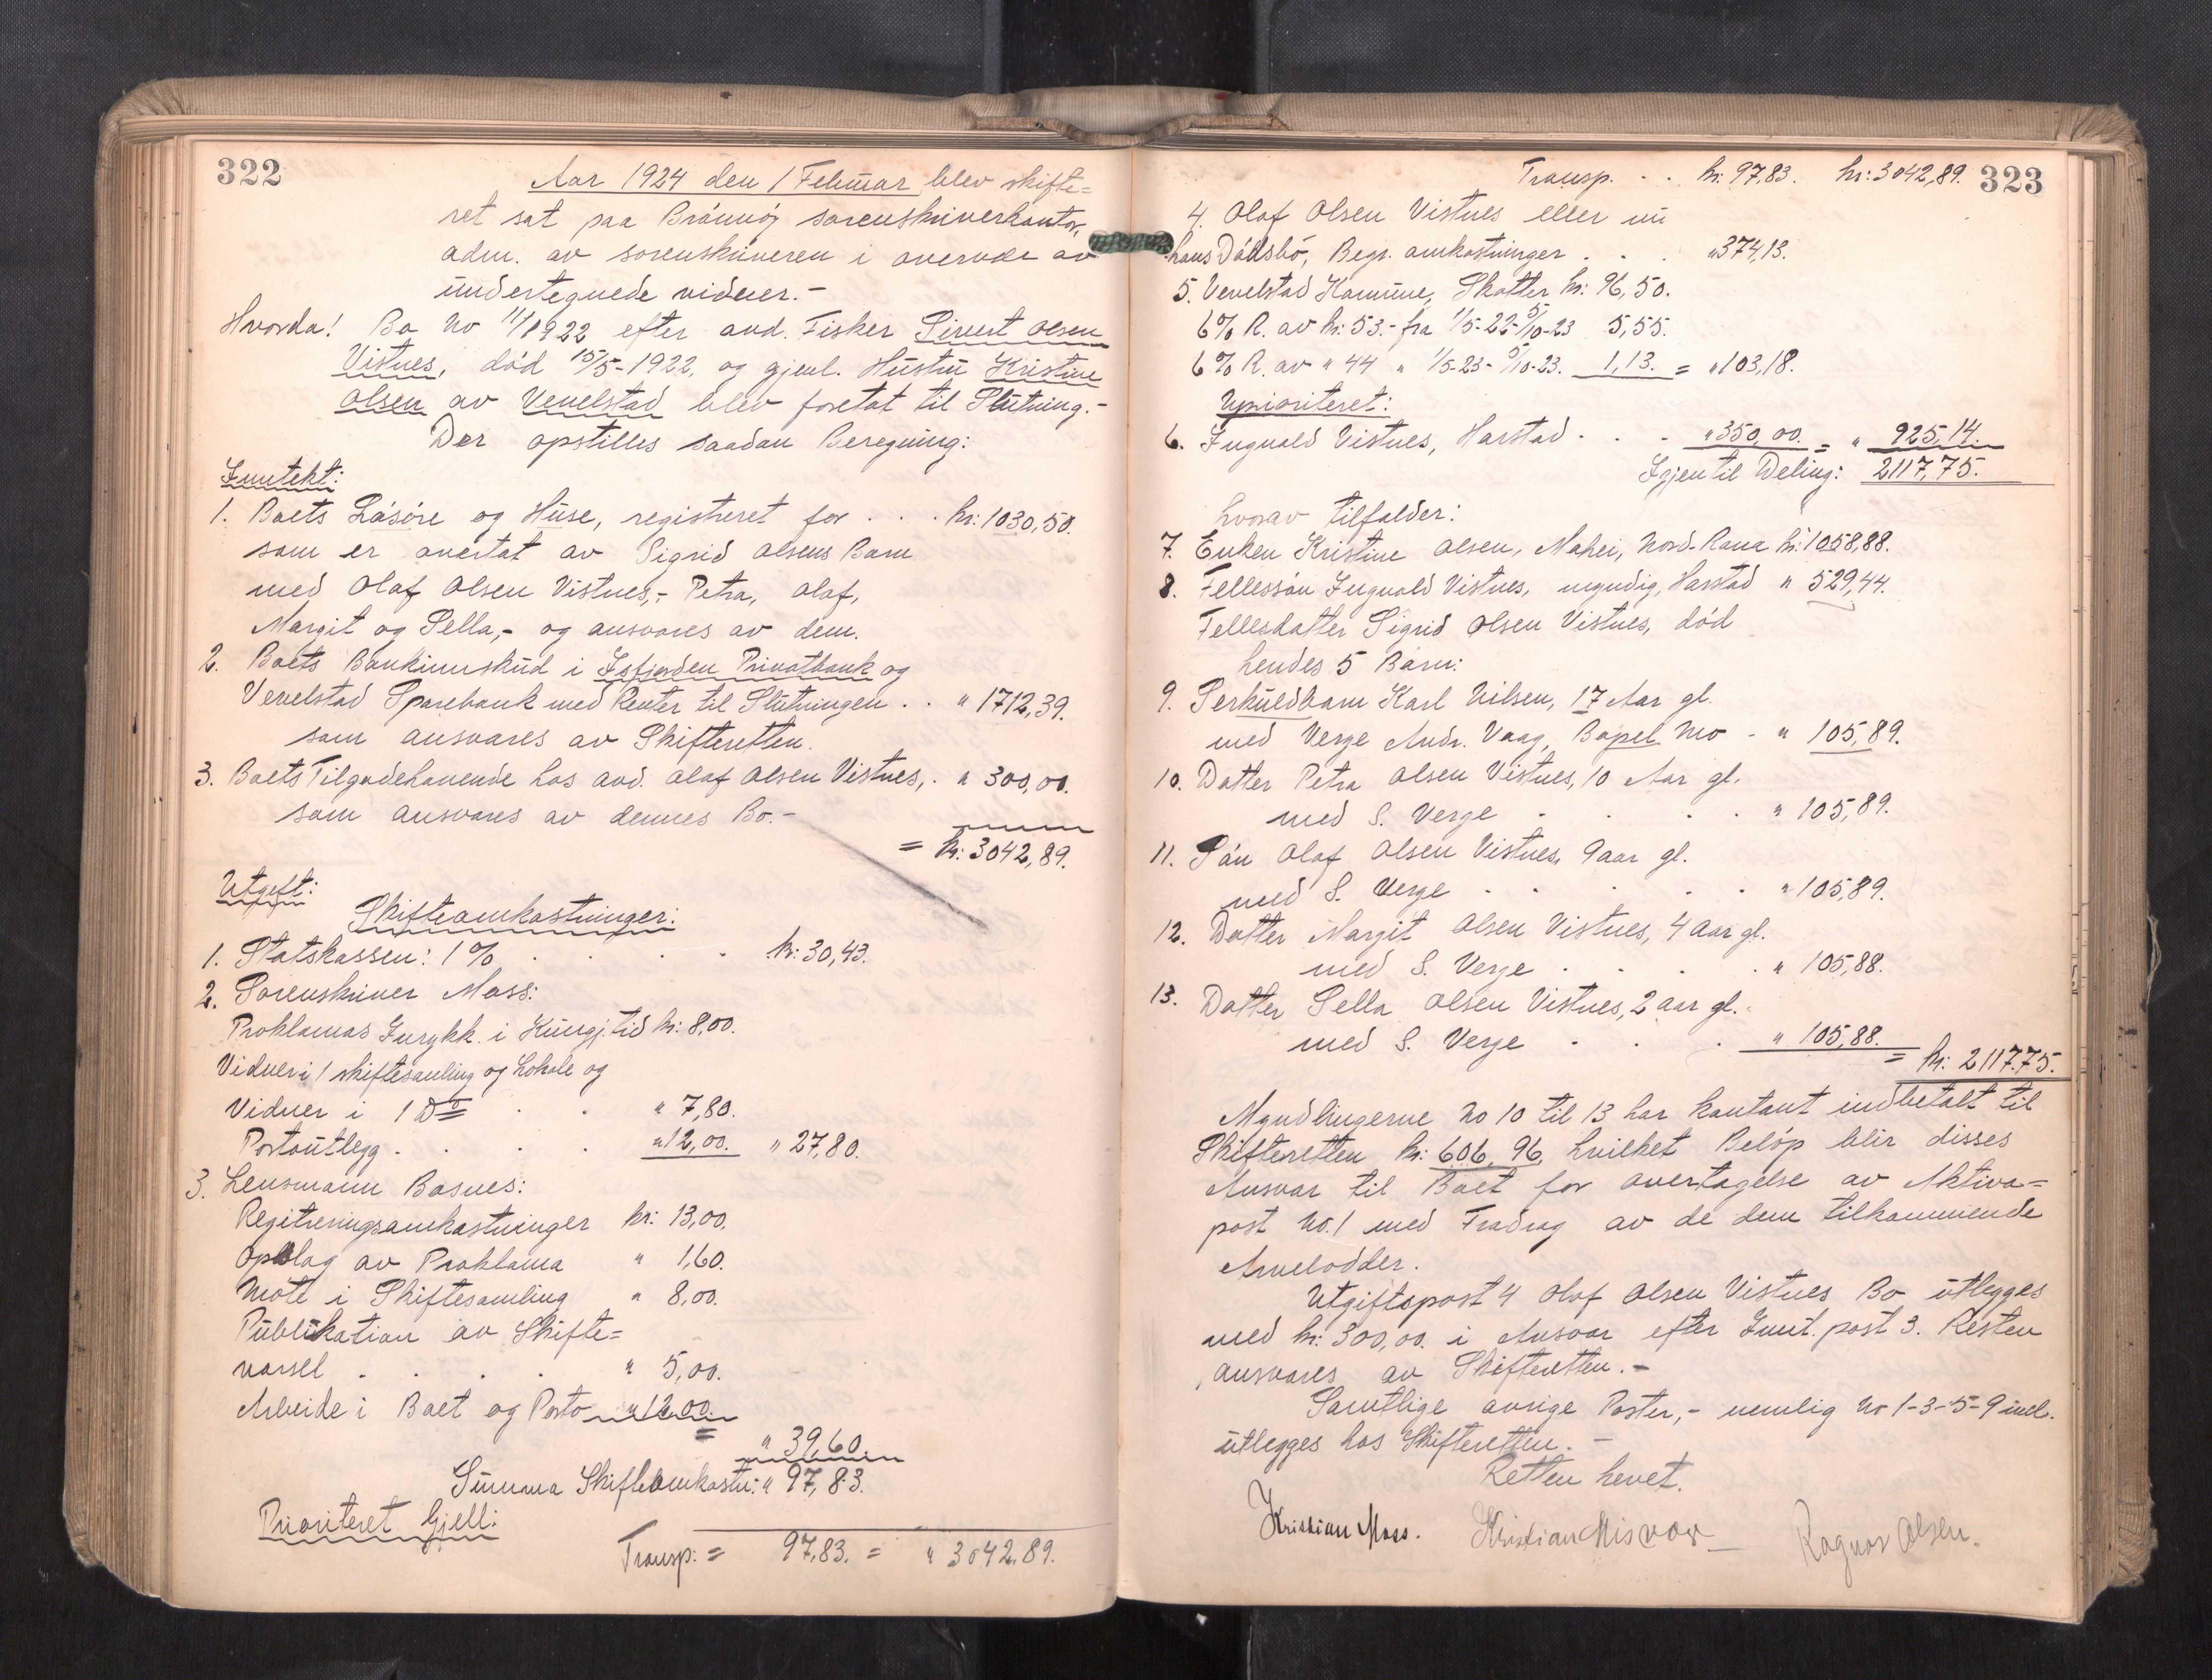 322
Aar 1924 den 1 Februar blev skifte=
ret sat paa Brønnøy sorenskriverkontor,
adm. av sorenskriveren i overvær av
undertegnede vidner.-
Hvorda! Bo No 11/1922 efter avd. Fisker Sivert Olsen
Vistnes, død 15/5-1922, og gjenl. Hustru Kristine
Olsen av Vevelstad blev foretat til Slutning.-
Der opstilles saadan Beregning:
Inntekt:
1. Boets Løsøre og Huse, registreret for . . . kr: 1030,50.
som er overtat av Sigrid Olsens Barn
med Olaf Olsen Vistnes,- Petra, Olaf,
Margit og Sella,- og ansvares av dem.
2. Boets Bankinnskud i Isfjorden Privatbank og
Vevelstad Sparebank med Renter til Slutningen . . " 1712,39.
som ansvares av Skifteretten.
3. Boets Tilgodehavende hos avd. Olaf Olsen Vistnes, . " 300,00.
som ansvares av dennes Bo.-
= kr: 3042,89.
Utgift:
Skifteomkostninger:
1. Statskassen: 1% . . . . kr: 30,43.
2. Sorenskriver Moss:
Proklamas Innrykk. i Kungj.tid kr: 8,00.
Vidner i 1 skiftesamling og Lokale og
Vidner i 1 Do . . " 7,80.
Portoutlegg . . . . " 12,00. " 27,80.
3. Lensmann Bosnes:
Regitreringsomkostninger kr: 13,00.
Opslag av Proklama " 1,60.
Møte i Skiftesamling " 8,00.
Publikation av Skifte=
varsel . . . . " 5,00.
Arbeide i Boet og Porto " 12,00.
= " 39,60.
Summa Skifteomkostn: " 97,83.
Prioriteret Gjell:
Transp: = 97,83. = " 3042,89.
Transp. . . kr: 97,83. kr: 3042,89. 323
4. Olaf Olsen Vistnes eller nu
hans Dødsbo, Begr. omkostninger . . . " 374,13.
5. Vevelstad Kommune, Skatter kr: 96,50.
6% R. av kr: 53.- fra 1/5-22-5/10-23 5,55.
6% R. av " 44 " 1/5-23-5/10-23. 1,13. = " 103,18.
Uprioriteret:
6. Ingvald Vistnes, Harstad . . . " 350,00. = " 925,14.
Igjen til Deling: 2117,75.
hvorav tilfalder:
7. Enken Kristine Olsen, Mohei, Nord-Rana kr: 1058,88.
8. Fellessøn Ingvald Vistnes, myndig, Harstad " 529,44.
Fellesdatter Sigrid Olsen Vistnes, død
hendes 5 Barn:
9. Serkuldbarn Karl Nilsen, 17 Aar gl.
med Verge Andr. Vaag, Bopel Mo - " 105,89.
10. Datter Petra Olsen Vistnes, 10 Aar gl.
med S. Verge . . . . " 105,89.
11. Søn Olaf Olsen Vistnes, 9 aar gl.
med S. Verge . . . . . " 105,89.
12. Datter Margit Olsen Vistnes, 4 Aar gl.
med S. Verge . . . . " 105,88.
13. Datter Sella Olsen Vistnes, 2 aar gl.
med S. Verge . . . " 105,88. = kr: 2117.75.
Myndlingerne No 10 til 13 har kontant indbetalt til
Skifteretten kr: 606,96, hvilket Beløp blir disses
Ansvar til Boet for overtagelse av Aktiva=
post No. 1 med Fradrag av de dem tilkommende
Arvelodder.
Utgiftspost 4 Olaf Olsen Vistnes Bo utlegges
med kr: 300,00. i Ansvar efter Innt. post 3. Resten
ansvares av Skifteretten.-
Samtlige øvrige Poster,- nemlig No 1-3-5-9 incl.
utlegges hos Skifteretten.-
Retten hevet.
Kristian Moss. Kristian Misvær Ragnar Olsen.